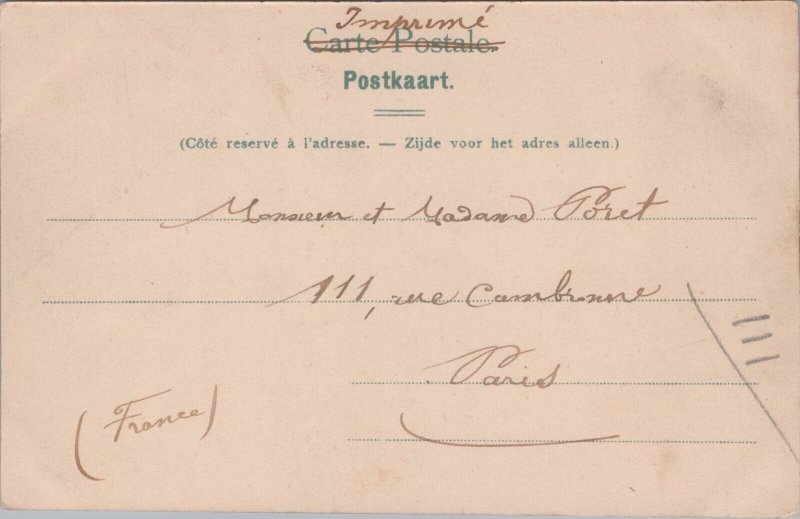 Imprimé
Carte Postale.
Postkaart.
(Côté reservé à l'adresse. — Zijde voor het adres alleen.)
Monsieur et Madame Poret
111, rue Cambronne
Paris
(France)
111